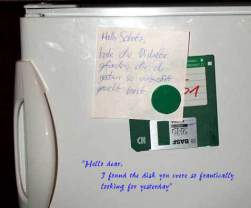 Hallo Schatz,
habe die Diskette
gefunden, die du
gestern so verzweifelt
gesucht hast.
BASF
"Hello dear,
I found the disk you were so frantically
looking for yesterday"